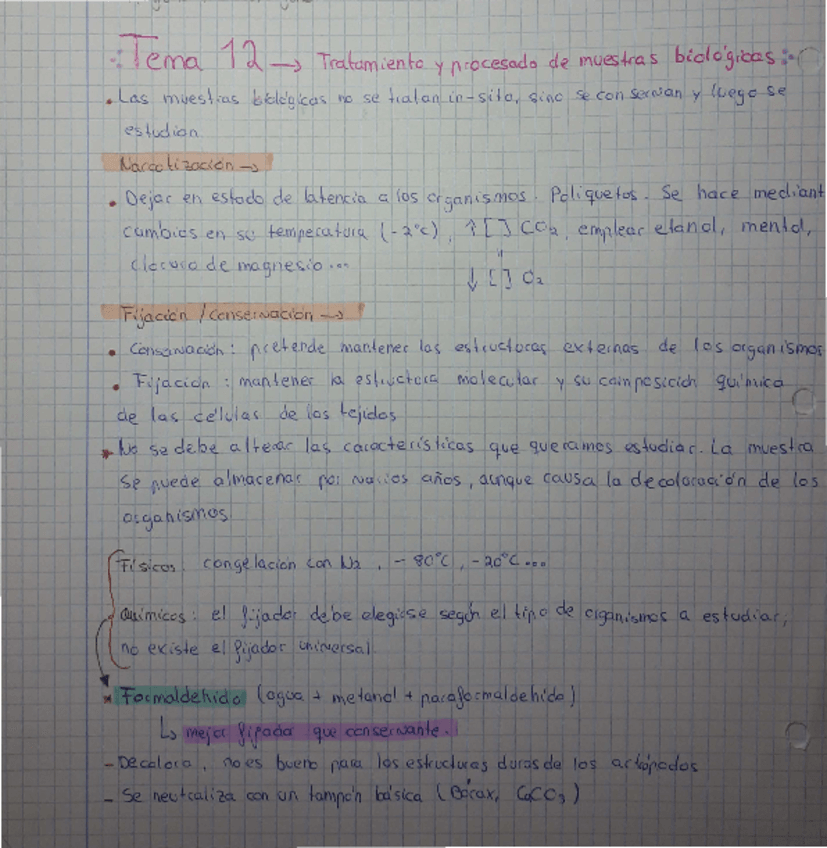 Tema 12 → Tratamiento y procesado de muestras biológicas
• Las muestras biológicas no se tratan in-situ, sino se conservan y luego se
estudian
Narcotización →
• Dejar en estado de latencia a los organismos. Poliquetos. Se hace mediant
cambios en su temperatura (-2°C), ↑ [ ] CO2, emplear etanol, mentol,
cloruro de magnesio...
↓ [ ] O2
Fijación / conservación →
• Conservación: pretende mantener las estructuras externas de los organismos
• Fijación: mantener la estructura molecular y su composición química
de las células de los tejidos
* No se debe alterar las características que queramos estudiar. La muestra
se puede almacenar por varios años, aunque causa la decoloración de los
organismos
Físicos: congelación con N2, -80°C, -20°C...
Químicos: el fijador debe elegirse según el tipo de organismos a estudiar,
no existe el fijador universal.
* Formaldehido (agua + metanol + paraformaldehido)
↳ mejor fijador que conservante.
- Decolora, no es bueno para las estructuras duras de los artrópodos
- Se neutraliza con un tampón básica (Bórax, CaCO3)